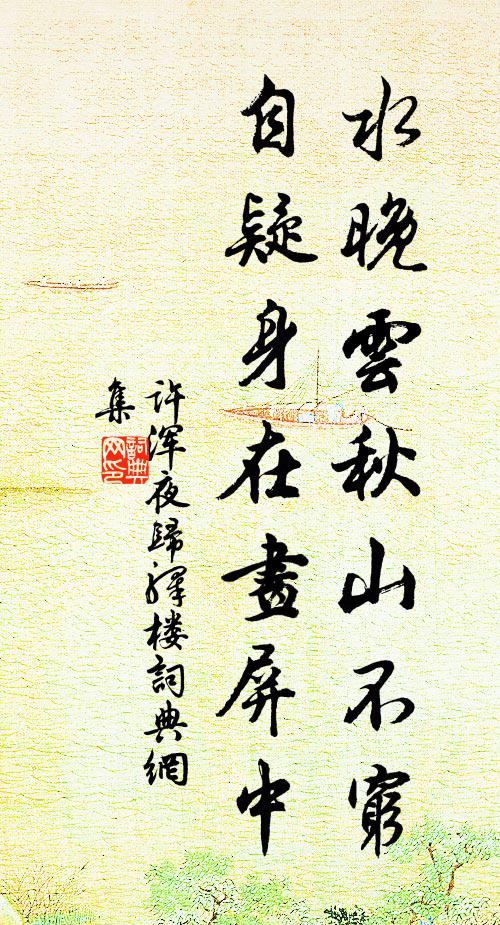 水晚雲秋山不窮
自疑身在畫屏中
许浑夜歸驛楼詞典網
集
詞典网印